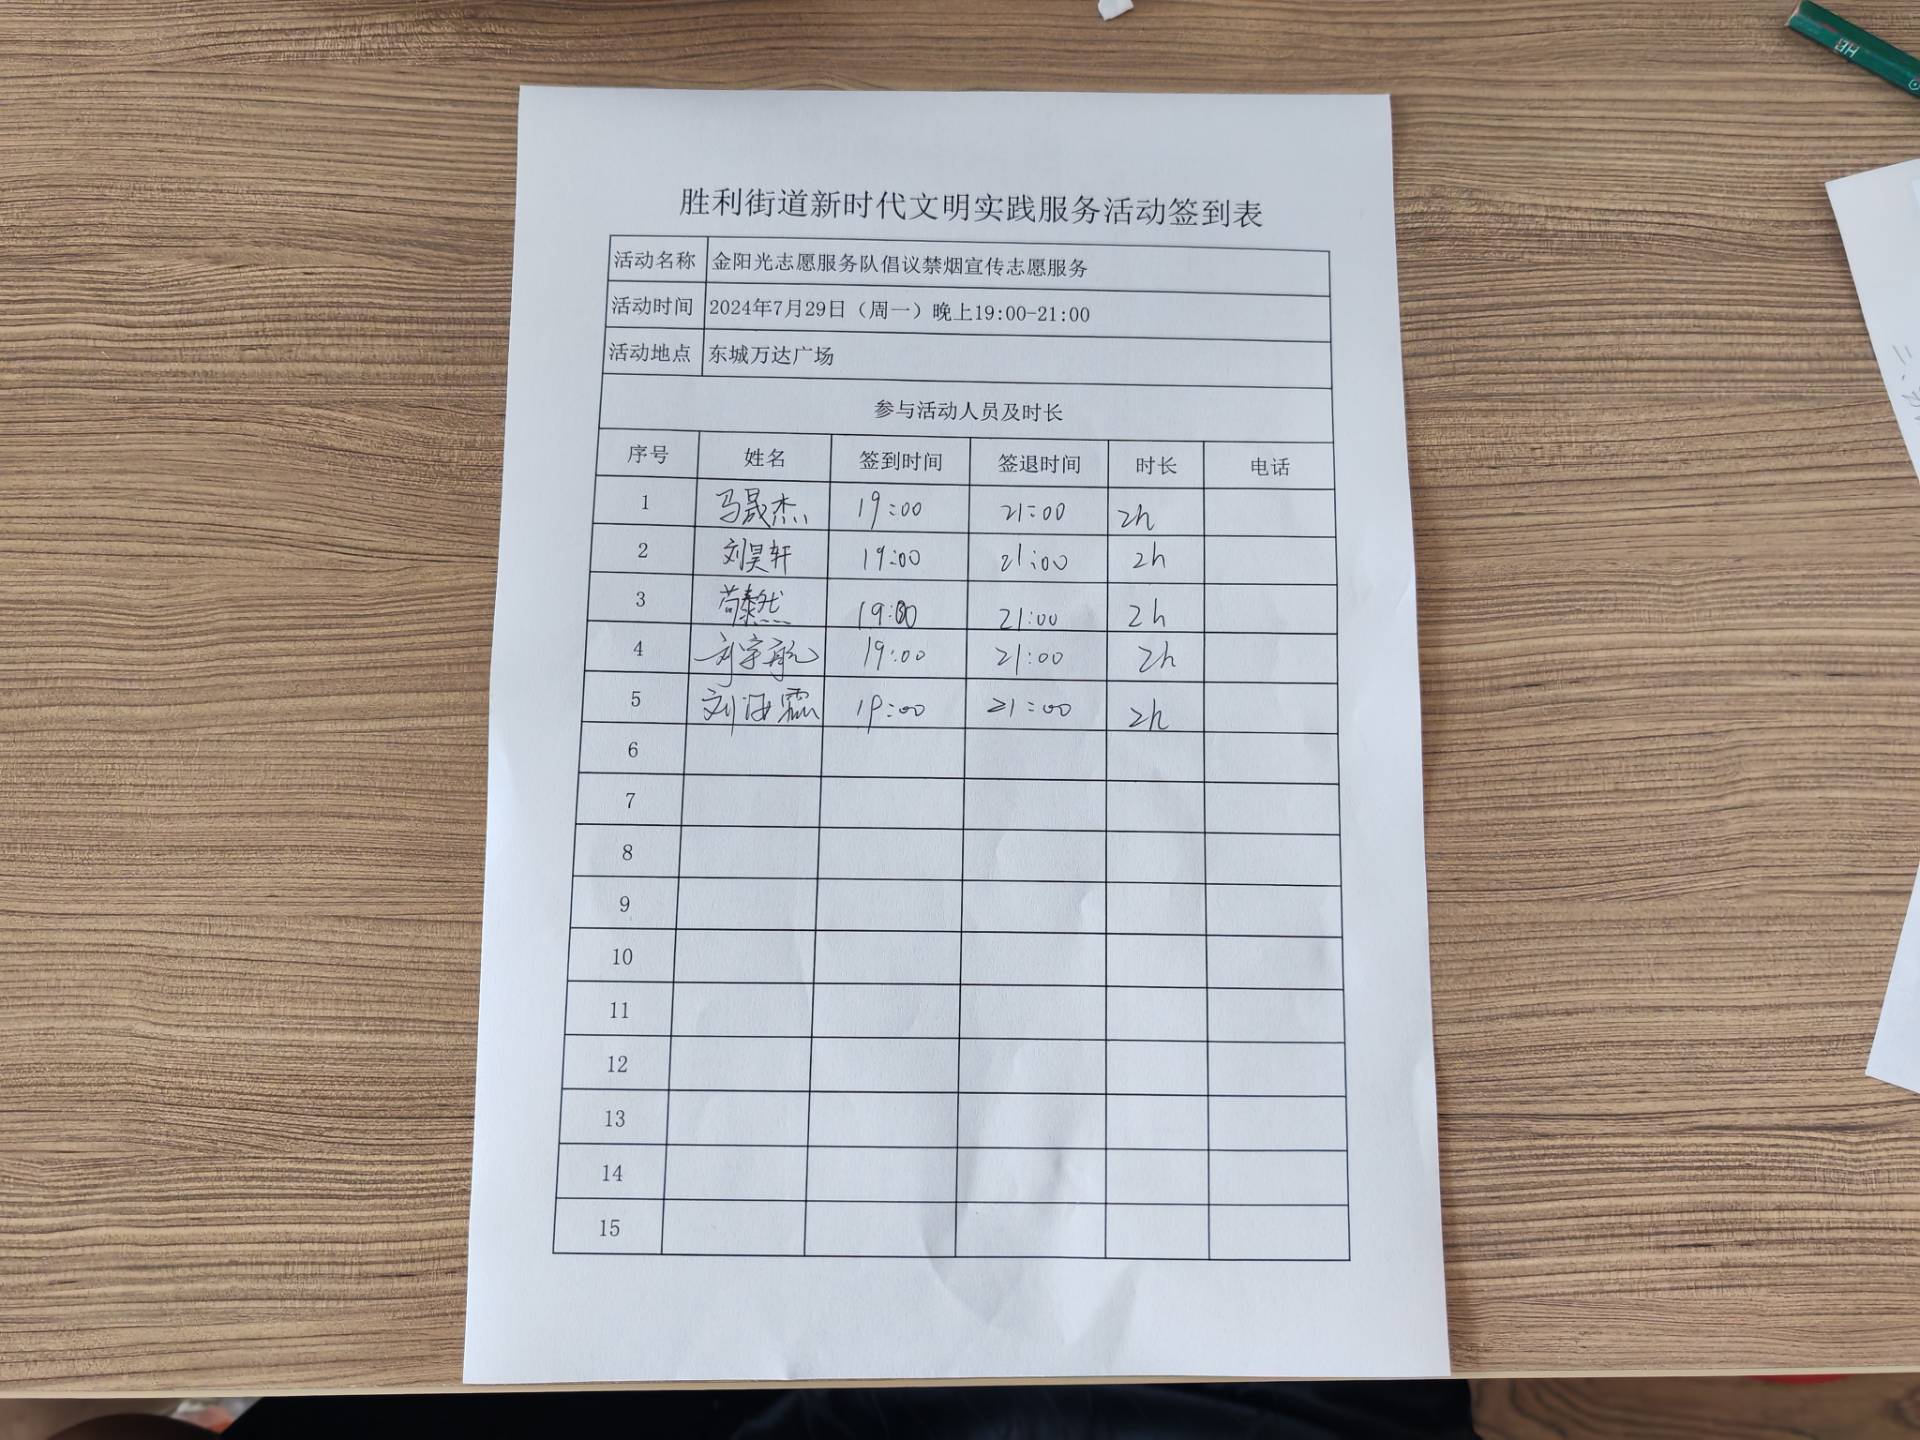 胜利街道新时代文明实践服务活动签到表
活动名称 金阳光志愿服务队倡议禁烟宣传志愿服务
活动时间 2024年7月29日（周一）晚上19:00-21:00
活动地点 东城万达广场
参与活动人员及时长
序号 姓名 签到时间 签退时间 时长 电话
1 马晟杰 19:00 21:00 2h
2 刘昊轩 19:00 21:00 2h
3 19:00 21:00 2h
4 刘宇航 19:00 21:00 2h
5 19:00 21:00 2h
6
7
8
9
10
11
12
13
14
15
HB